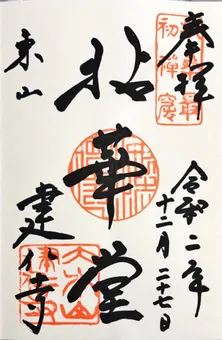 奉拝
扶桑最初禅窟
拈華堂
東山
建仁寺
令和二年
十二月二十七日